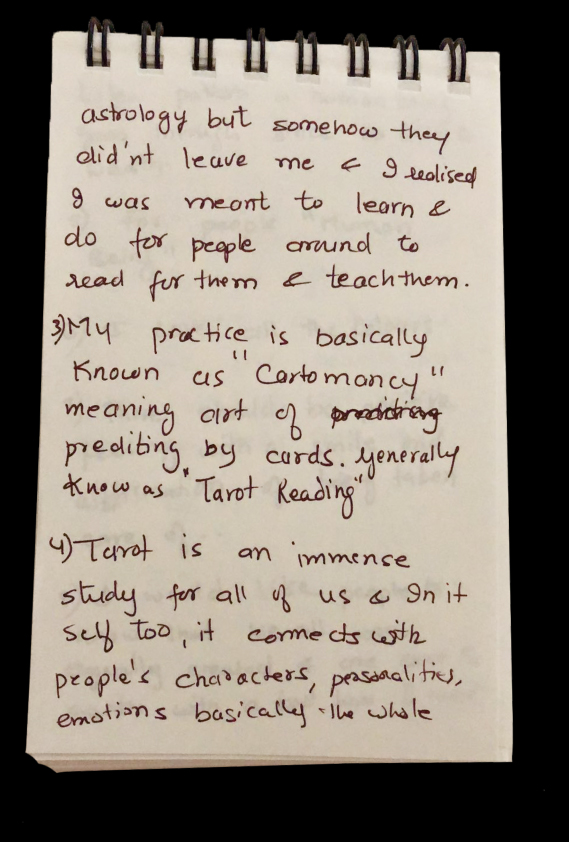 astrology but somehow they
did'nt leave me & I realised
I was meant to learn &
do for people around to
read for them & teach them.
3) My practice is basically
known as "Cartomancy"
meaning art of
prediting by cards. Generally
know as "Tarot Reading"
4) Tarot is an immense
study for all of us & In it
self too, it connects with
people's characters, personalities,
emotions basically the whole